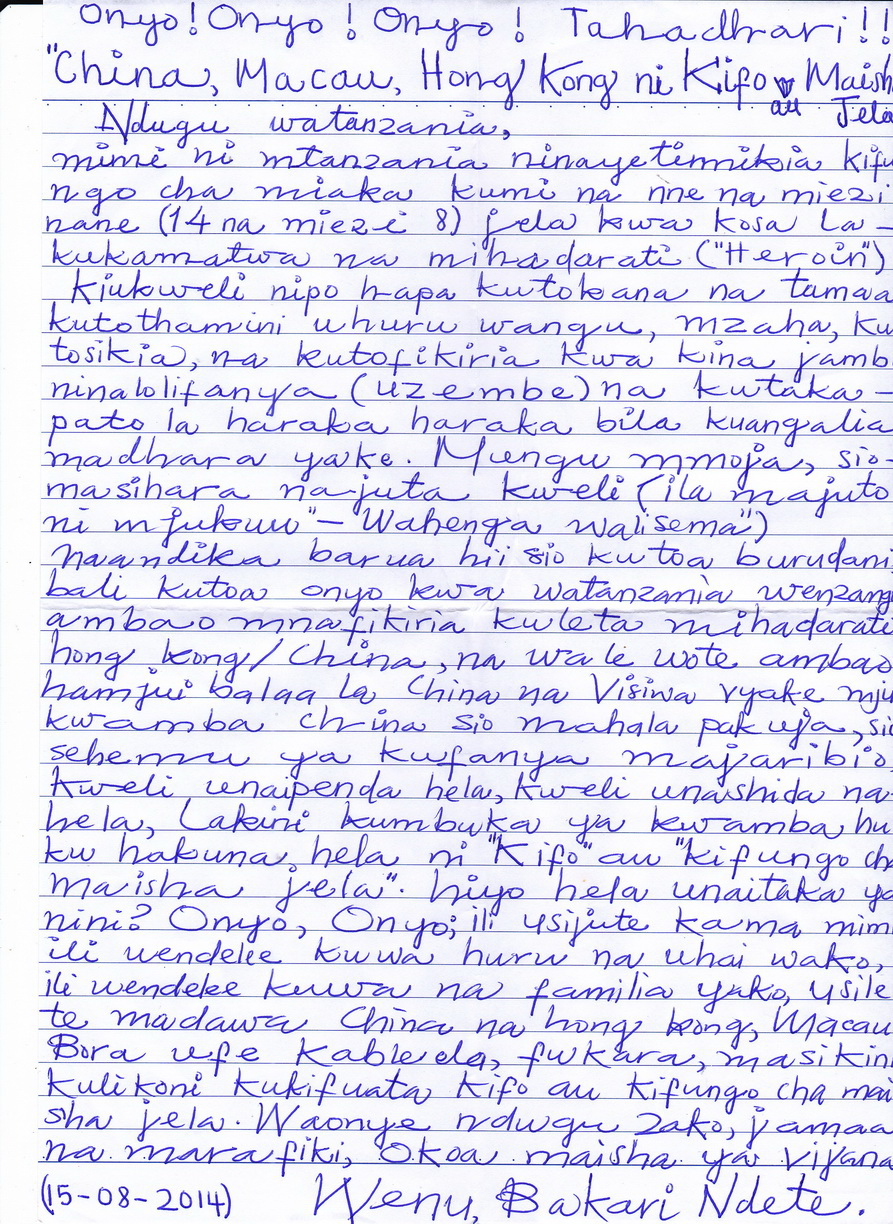 Onyo! Onyo! Onyo! Tahadhari!!
"China, Macau, Hong Kong ni Kifo au Maish
Jela
Ndugu watanzania,
mimi ni mtanzania ninayetumikia kifu
ngo cha miaka kumi na nne na miezi
nane (14 na miezi 8) jela kwa kosa la -
kukamatwa na mihadarati ("Heroin")
Kiukweli nipo hapa kutokana na tamaa
kutothamini uhuru wangu, mzaha, ku
tosikia, na kutofikiria kwa kina jamb
ninalolifanya (uzembe) na kutaka -
pato la haraka haraka bila kuangalia
madhara yake. Mungu mmoja, sio-
masihara najuta kweli (ila majuto
ni mjukuu" - Wahenga walisema")
Naandika barua hii sio kutoa burudani
bali kutoa onyo kwa watanzania wenzang
ambao mnafikiria kuleta mihadarati
hong kong/China, na wale wote ambao
hamjui balaa la China na Visiwa vyake mju
kwamba china sio mahala pakuja, sio
sehemu ya kufanya majaribio
Kweli unaipenda hela, kweli unashida na
hela, Lakini kumbuka ya kwamba hu
ku hakuna hela ni "Kifo" au "kifungo cha
maisha jela". hiyo hela unaitaka ya
nini? Onyo, Onyo; ili usijute kama mim
ili wendelee kuwa huru na uhai wako,
ili wendelee kuwa na familia yako, usile
te madawa China na hong kong, Macau
Bora ufe kabwela, fukara, masikini
kulikoni kukifuata kifo au kifungo cha mai
sha jela. Waonye ndugu zako, jamaa
na marafiki, Okoa maisha ya vijana
(15-08-2014) Wenu, Bakari Ndete.